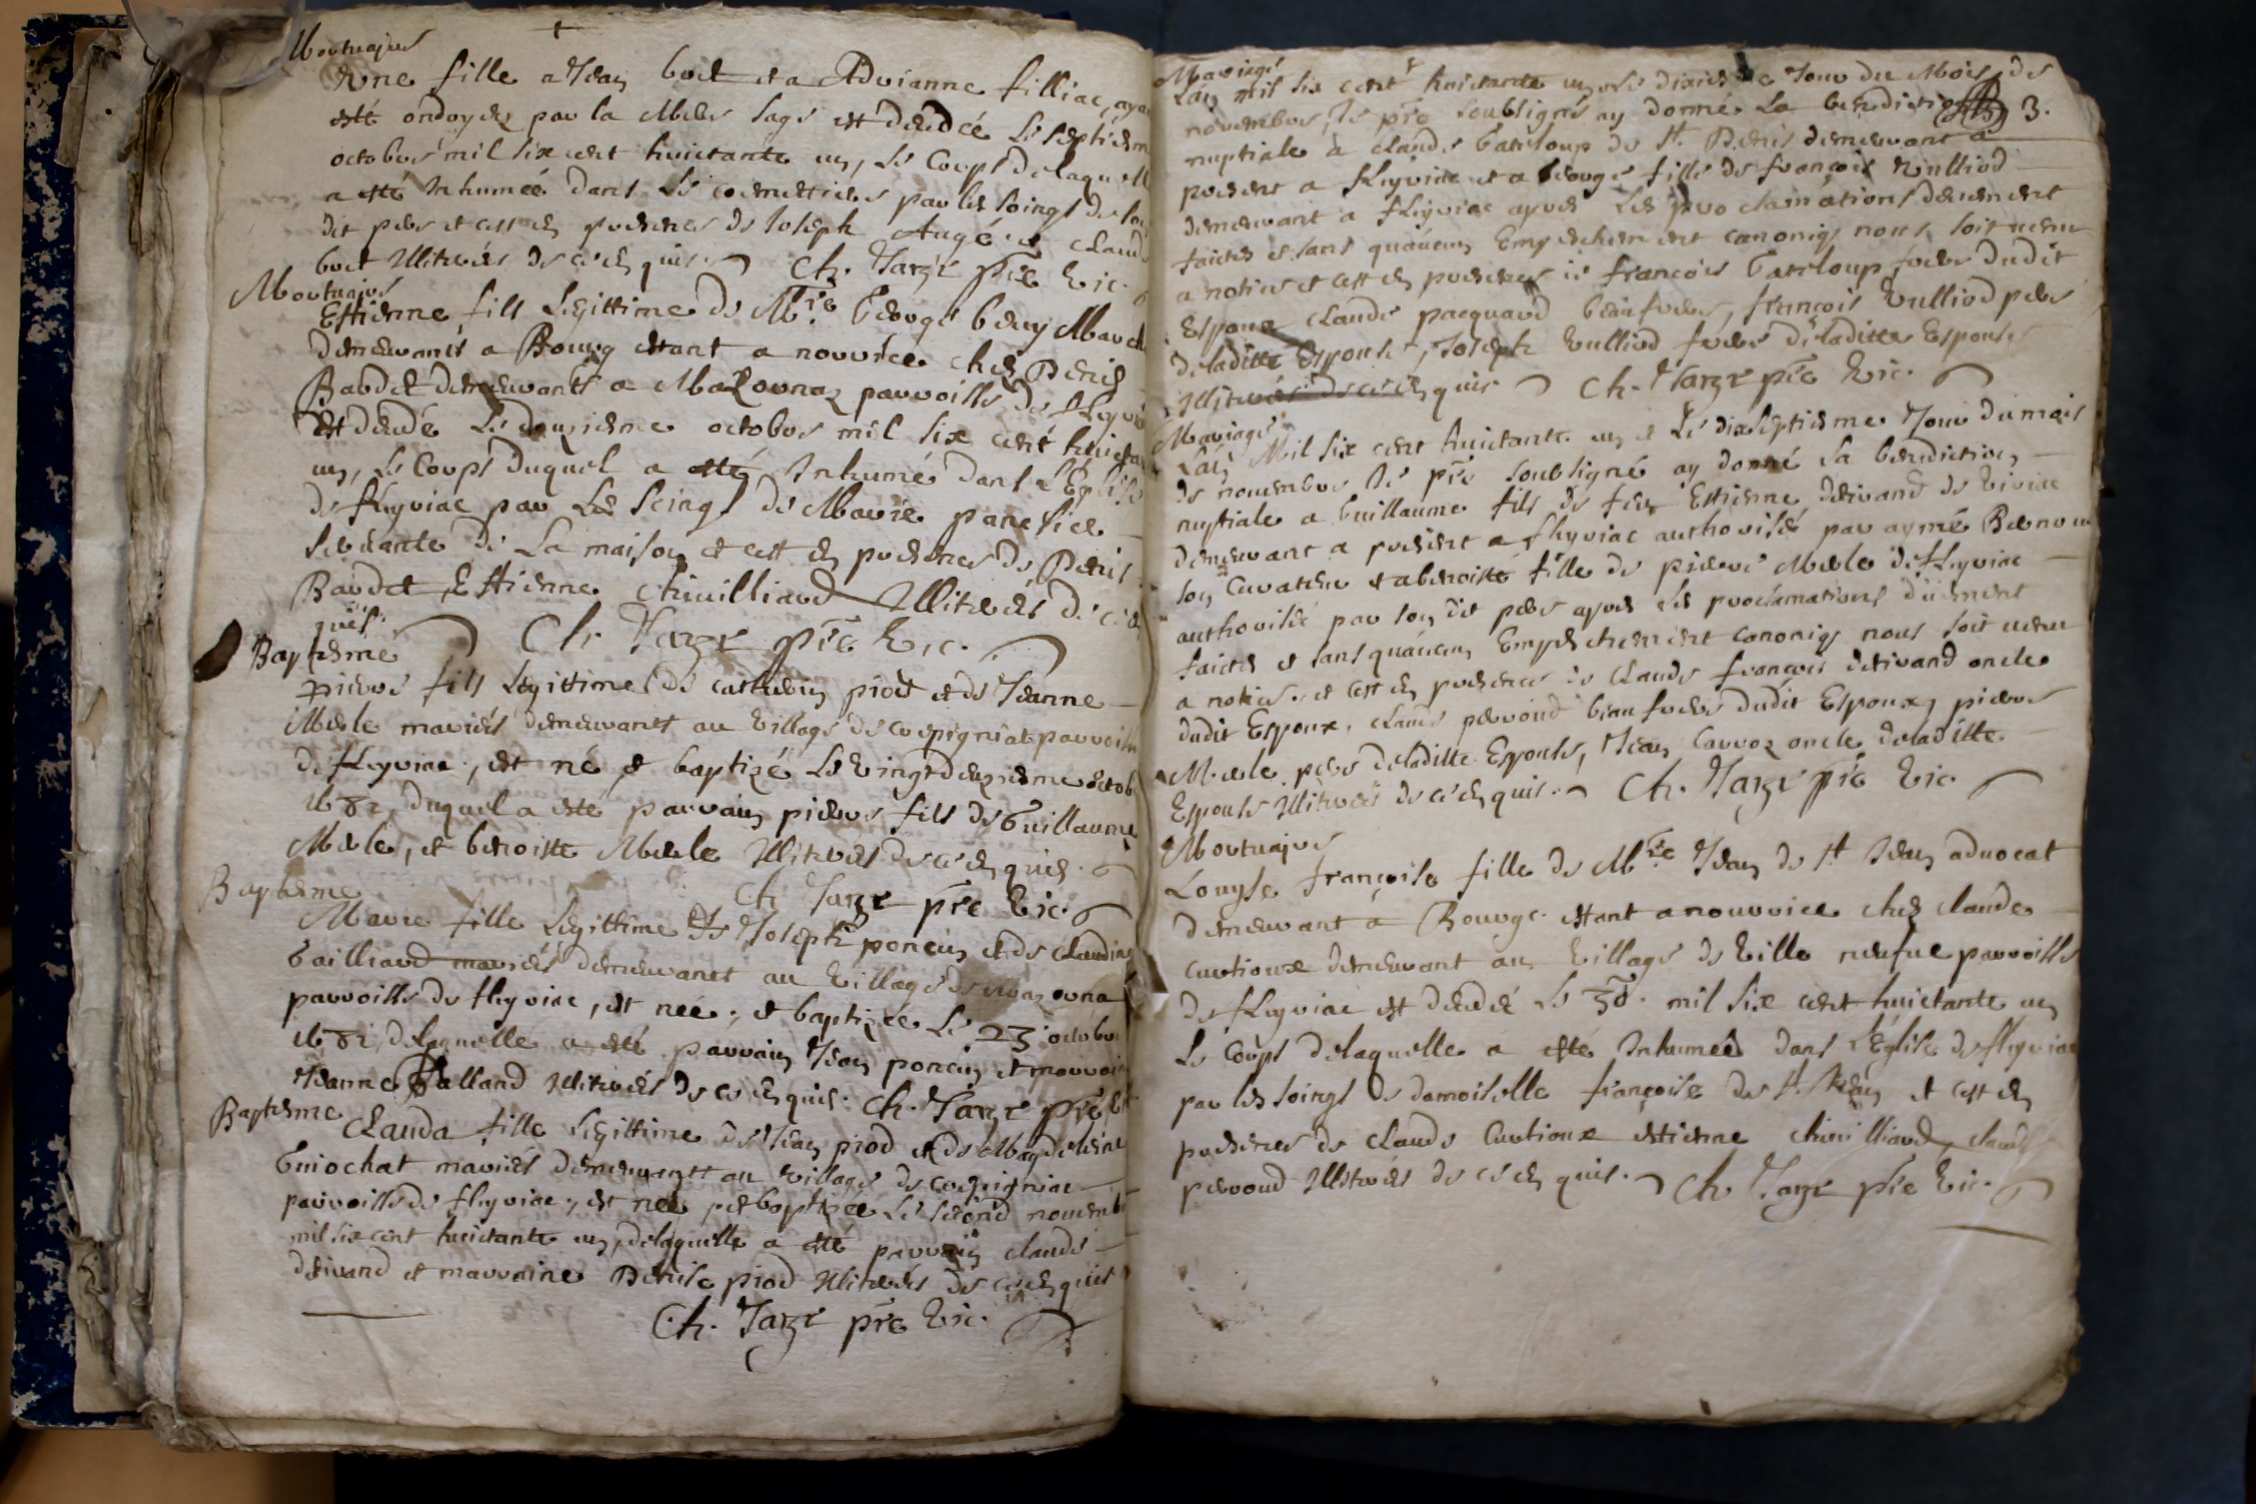 Mortuajres
Une fille a Jean boet et a Adrianne filliac, aya
esté ondoyez par la Mere sage est decedée le septiem
octobre mil six cent huictante un, le Corps delaquell
a esté Inhumée dans le coemettiere par les soings de son
dit pere et c'est en presence de Joseph Augé et Claud
boet Illiterés de ce enquis. Ch. pre Vic.
Mortuajres
Estienne fils Legittime de Mre George March
demeurants a Bourg estant a nourrice chez Denis
Baudet demeurants a Mazornaz parroisse de fleyri
est decedé Le douziesme octobre mil six cent huicta
un, Le Corps duquel a esté Inhumé dans l'Eglise
de fleyriac par Les soings de Marie
servante de La maison et c'est en presence de Denis
Baudet, Estienne chivilliard Illiterés de ce en
quis. Ch. pre Vic.
Baptesme
pierre fils Legittime de catherin piod et de Jeanne
Merle mariés demeurants au Village de parroisse
de fleyriac, est né et baptizé Le vingtdeuxiesme octob
1681, duquel a esté parrain pierre fils de Guillaume
Merle, et benoiste Merle Illiterés de ce enquis.
Ch. pre Vic.
Baptesme
Marie fille Legittime de Joseph poncin et de Claudine
Gailliard mariés demeurants au Village de mazorna
parroisse de fleyriac, est née, et baptizée Le 23 octobre
1681, delaquelle a esté parrain Jean poncin et marrain
Jeanne Balland Illiterés de ce enquis. Ch. pre Vic
Baptesme
Clauda fille Legittime de Jean piod et de Magdeleine
Guiochat mariés demeurants au village de
parroisse de fleyriac, est née et baptizée Le second novemb
mil six cent huictante un, delaquelle a esté parrain claude
derivand et marraine Denise piod Illiterés de ce enquis
Ch. pre Vic.
3.
Mariage
L'an mil six cent huictante un et Le dixiesme Jour du Mois de
novembre, Je pre soubsigné ay donné La benediction
nuptiale a claude Gateloup de St. Denis demeurant a
present a fleyriac et a fille de françois Vulliod
demeurant a fleyriac apres Les proclamations deuement
faictes et sans qu'aucun Empeschement canoniq nous soit venu
a notice et c'est en presence de françois Gateloup frere dudit
Espoux Claude pacquard beaufrere, françois Vulliod pere
deladitte Espouse, Joseph Vulliod frere deladitte Espouse
Illiterés de ce enquis Ch. pre Vic.
Mariage
L'an Mil six cent huictante un et Le dixseptiesme Jour du mois
de novembre Je pre soubsigné ay donné La benediction
nuptiale a Guillaume fils de feu Estienne derivand de Viriac
demeurant a present a fleyriac authorisé par aymé
son Curateur et a benoiste fille de pierre Merle de fleyriac
authorisée par son dit pere apres les proclamations düement
faictes et sans qu'aucun Empeschement canoniq nous soit venu
a notice et c'est en presence de Claude françois derivand oncle
dudit Espoux, claude perroud beaufrere dudit Espoux, pierre
Merle pere deladitte Espouse, Jean Carroz oncle deladitte
Espouse Illiterés de ce enquis. Ch. pre Vic.
Mortuajres
Louyse françoise fille de Mre Jean de St Jean advocat
demeurant a Bourg estant a nourrice chez claude
curtioux demeurant au Village de Ville neufve parroisse
de fleyriac est decedée Le 30. mil six cent huictante un
Le Corps delaquelle a esté Inhumée dans L'Eglise de fleyriac
par les soings de damoiselle françoise de St. Jean et c'est en
presence de claude Curtioux estienne chivilliard, claude
perroud Illiterés de ce enquis. Ch. pre Vic.